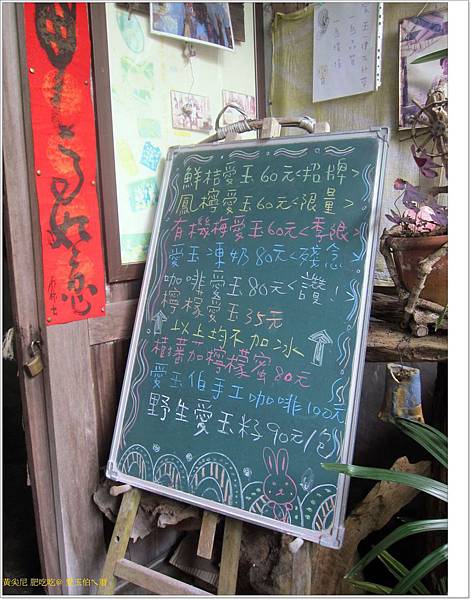 鮮桔愛玉60元<招牌>
鳳檸愛玉60元<限量>
有機梅愛玉60元<季限>
愛玉凍奶80元<殘念>
咖啡愛玉80元<讚!>
檸檬愛玉35元
以上均不加冰
樹蕃加檸檬蜜80元
愛玉伯手工咖啡100元
野生愛玉籽90元/包
事事如意
黃尖尼 肥吃吃@ 愛玉伯ㄟ厝